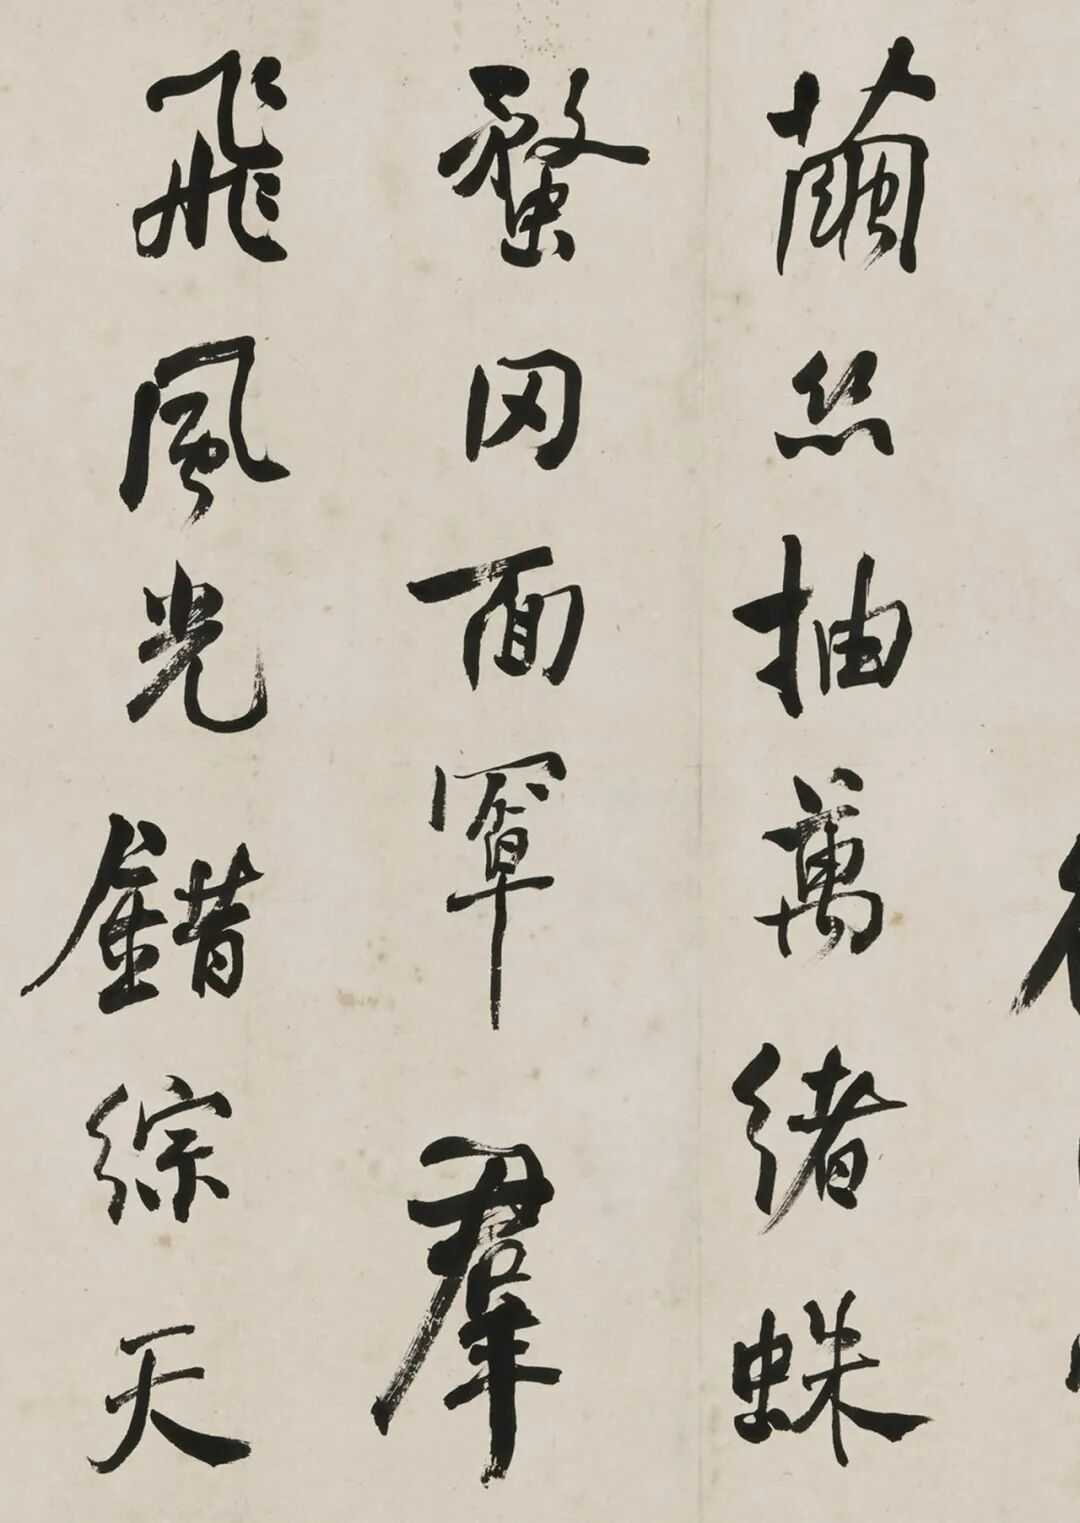 繭絲抽萬緒蛛
蝥网面罩羣
飛風光錯綜天